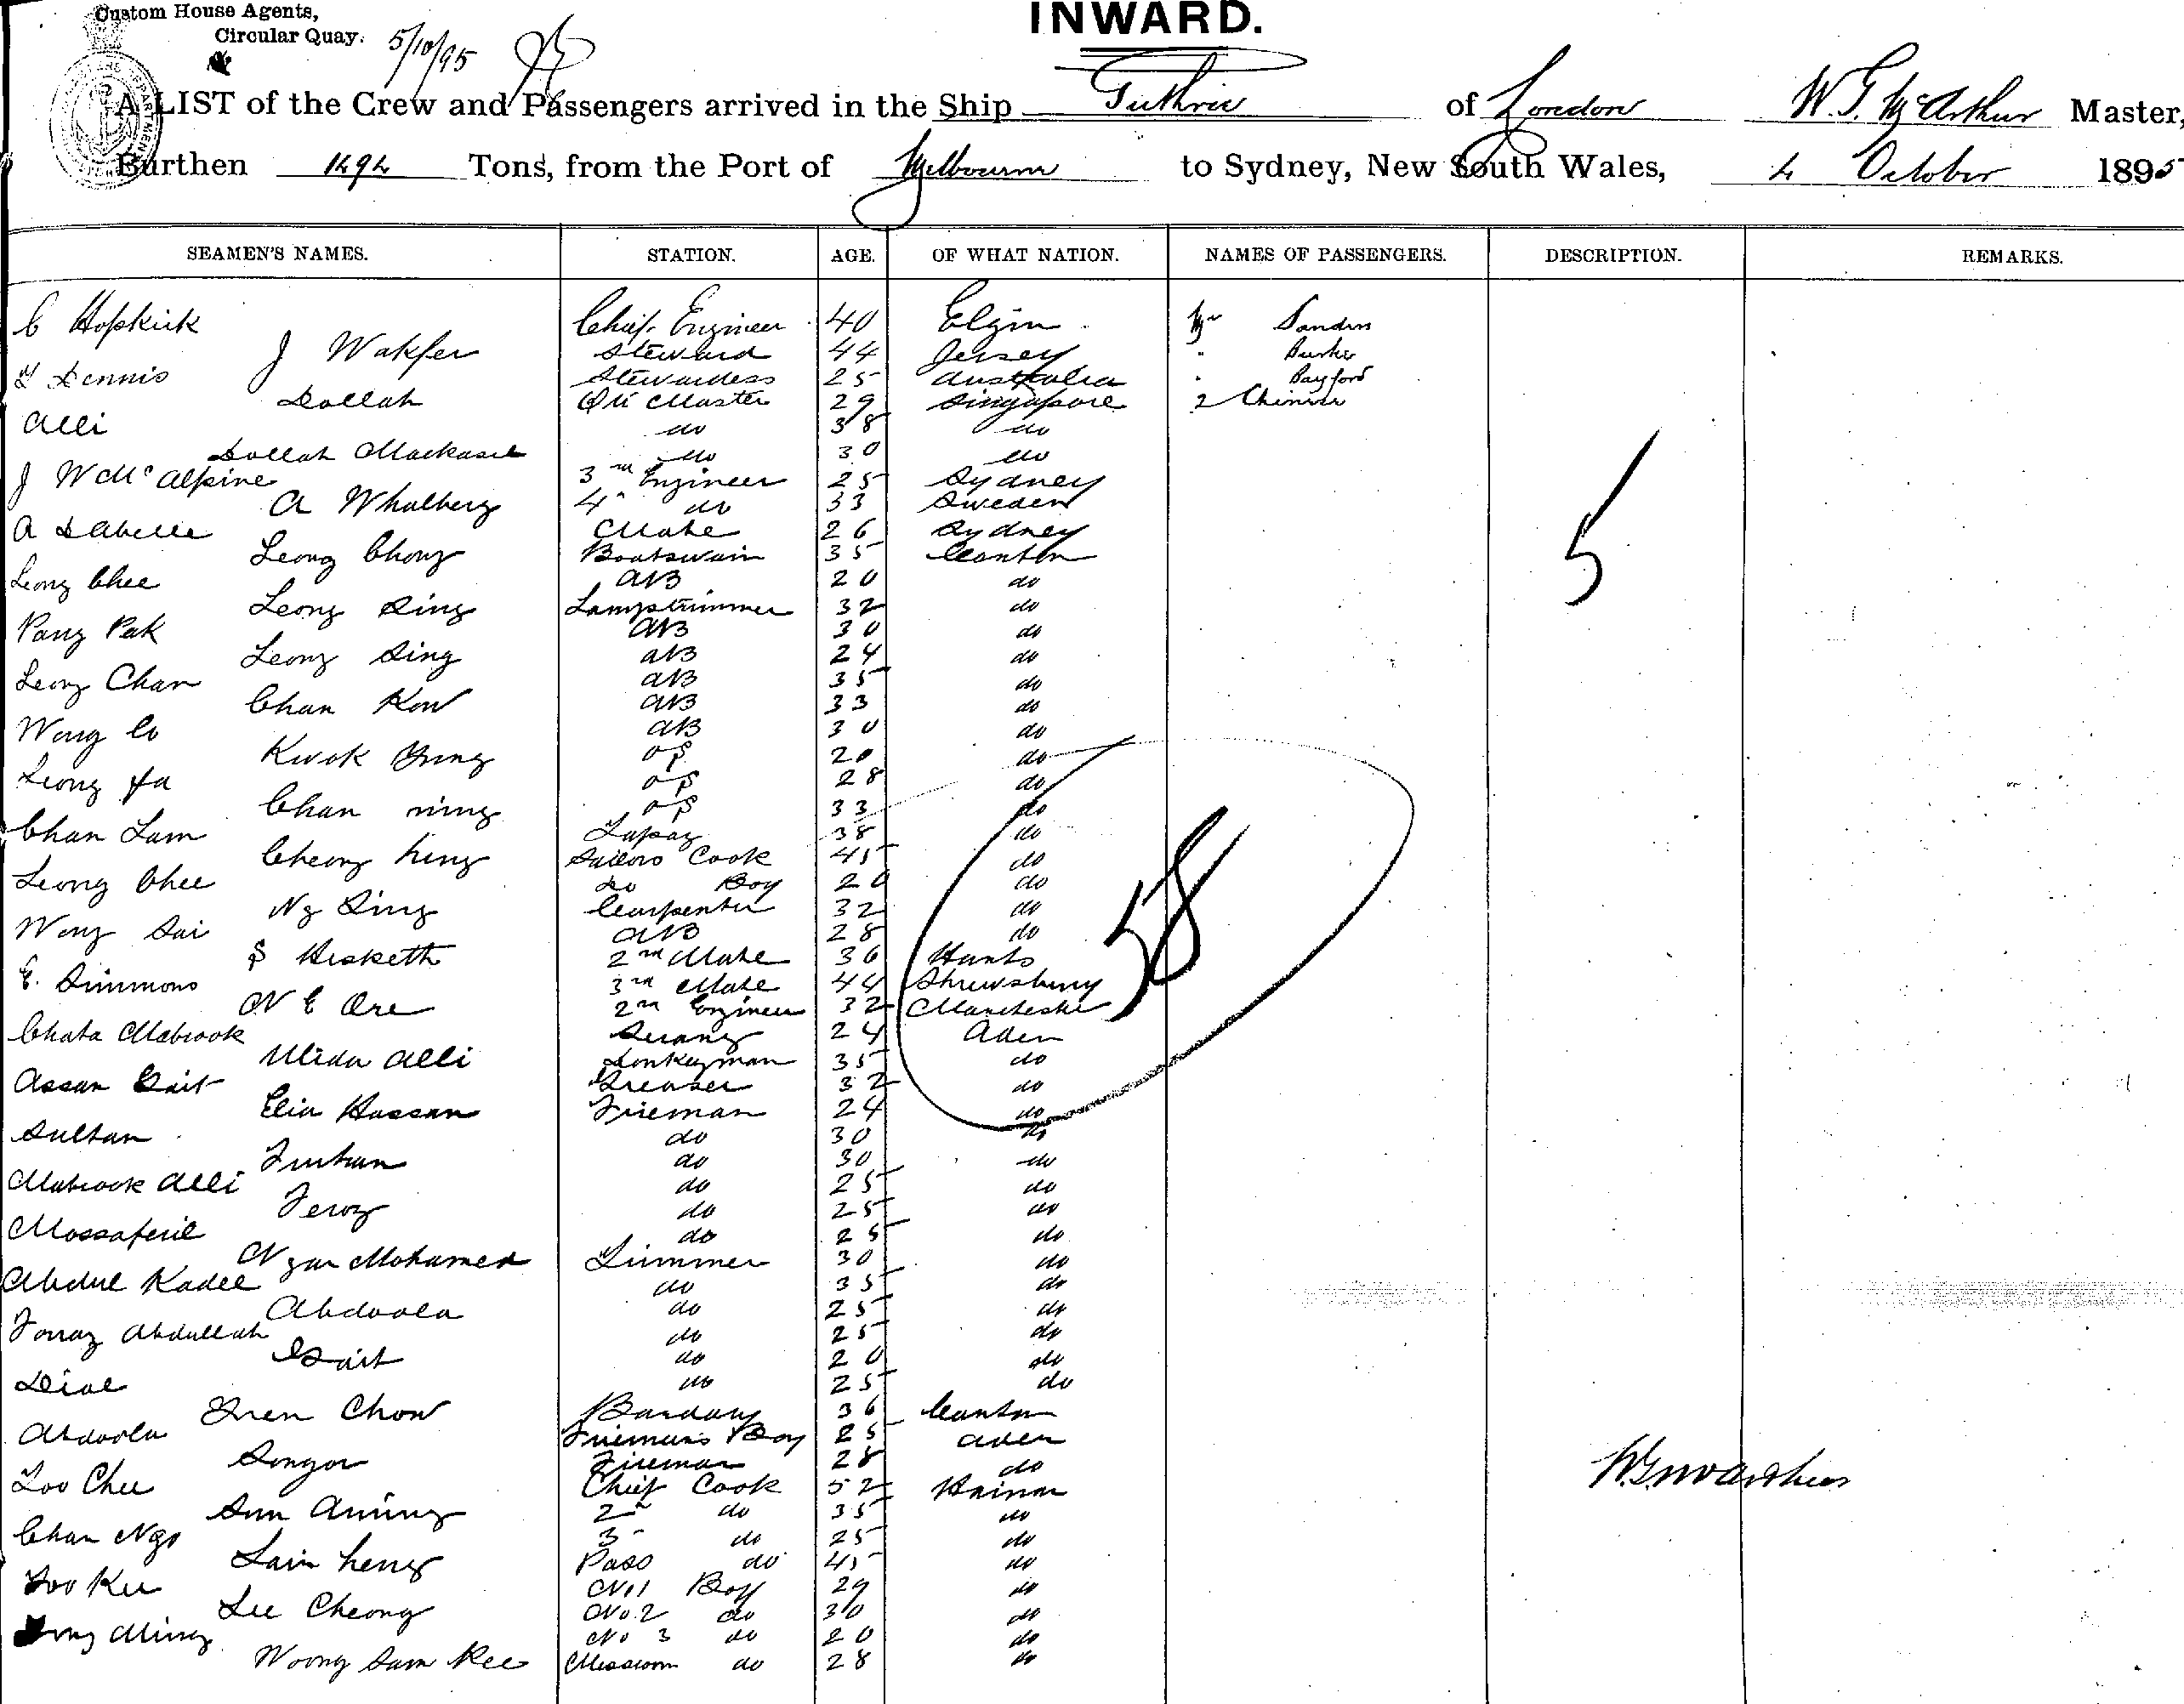 Custom House Agents,
Circular Quay. 5/10/95
INWARD.
A LIST of the Crew and Passengers arrived in the Ship Guthrie of London W. G. McArthur Master,
Burthen 1494 Tons, from the Port of Melbourne to Sydney, New South Wales, 4 October 1895
SEAMEN'S NAMES. STATION. AGE. OF WHAT NATION. NAMES OF PASSENGERS. DESCRIPTION. REMARKS.
C Hopkirk Chief Engineer 40 Elgin Mr Sanders
J Wakfer Steward 44 Jersey " Burke
Dennis Stewardess 25 Australia " Bayford
Dollah Qr Master 29 Singapore 2 Chinese
Alli do 38 do
Dollah Mackasil do 30 do
J W McAlpine 3rd Engineer 25 Sydney
A Whalberg 4" do 33 Sweden
A Labelle Mate 26 Sydney
Leong Chong Boatswain 35 Canton
Leong Chee AB 20 do
Leong Sing Lamptrimmer 32 do
Pang Pak AB 30 do
Leong Sing AB 24 do
Leong Chan AB 35 do
Chan Kow AB 33 do
Wong Co AB 30 do
Kwok Yung OS 20 do
Leong Ya OS 28 do
Chan ning OS 33 do
Chan Lam 38 do
Cheong heng Sailors Cook 45 do
Leong Chee do Boy 20 do
Ng Sing Carpenter 32 do
Wong Sai AB 28 do
S Hesketh 2nd Mate 36 Hants
E. Simmons 3rd Mate 44 Shrewsbury
N E Ore 2nd Engineer 32 Manchester
Chata Mabrook Serang 24 Aden
Ulida Alli Donkeyman 35 do
Assan Sait Greaser 32 do
Elia Hassan Fireman 24 do
Sultan do 30 do
Furhan do 30 do
Mabrook Alli do 25 do
Feroz do 25 do
Mossaferie do 25 do
Ngar Mohamed Trimmer 30 do
Abdul Kadel do 35 do
Abdoola do 25 do
Farraz Abdullah do 25 do
Sait do 20 do
Dial do 25 do
Chow 36 Canton
Abdoola Fireman's Boy 25 Aden
Songor Fireman 28 do
Loo Chee Chief Cook 52 Hainan
Sun Aming 2" do 35 do
Chan Ngo 3" do 25 do
Lain heng Pass do 45 do
Foo Kee No 1 Boy 29 do
Lee Cheong No. 2 do 30 do
Ming No 3 do 20 do
Woong Sam Kee Messroom do 28 do
5
58
W. G. McArthur